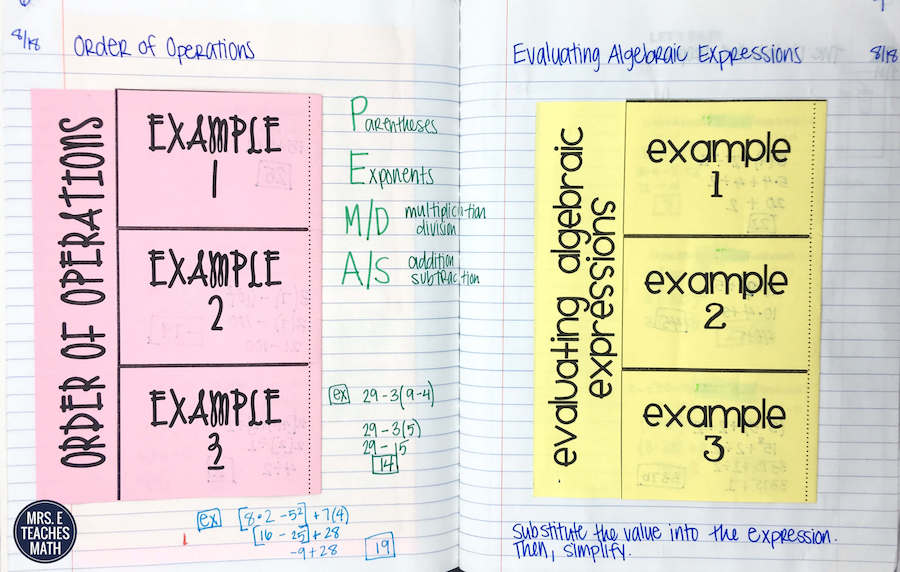 8/18
Order of Operations
ORDER OF OPERATIONS
EXAMPLE
1
EXAMPLE
2
EXAMPLE
3
Parentheses
Exponents
M/D multiplication
division
A/S addition
subtraction
ex 29-3(9-4)
29-3(5)
29-15
14
ex [8•2-5²]+7(4)
[16-25]+28
-9+28 19
MRS. E
TEACHES
MATH
Evaluating Algebraic Expressions 8/18
evaluating algebraic
expressions
example
1
example
2
example
3
Substitute the value into the expression.
Then, simplify.